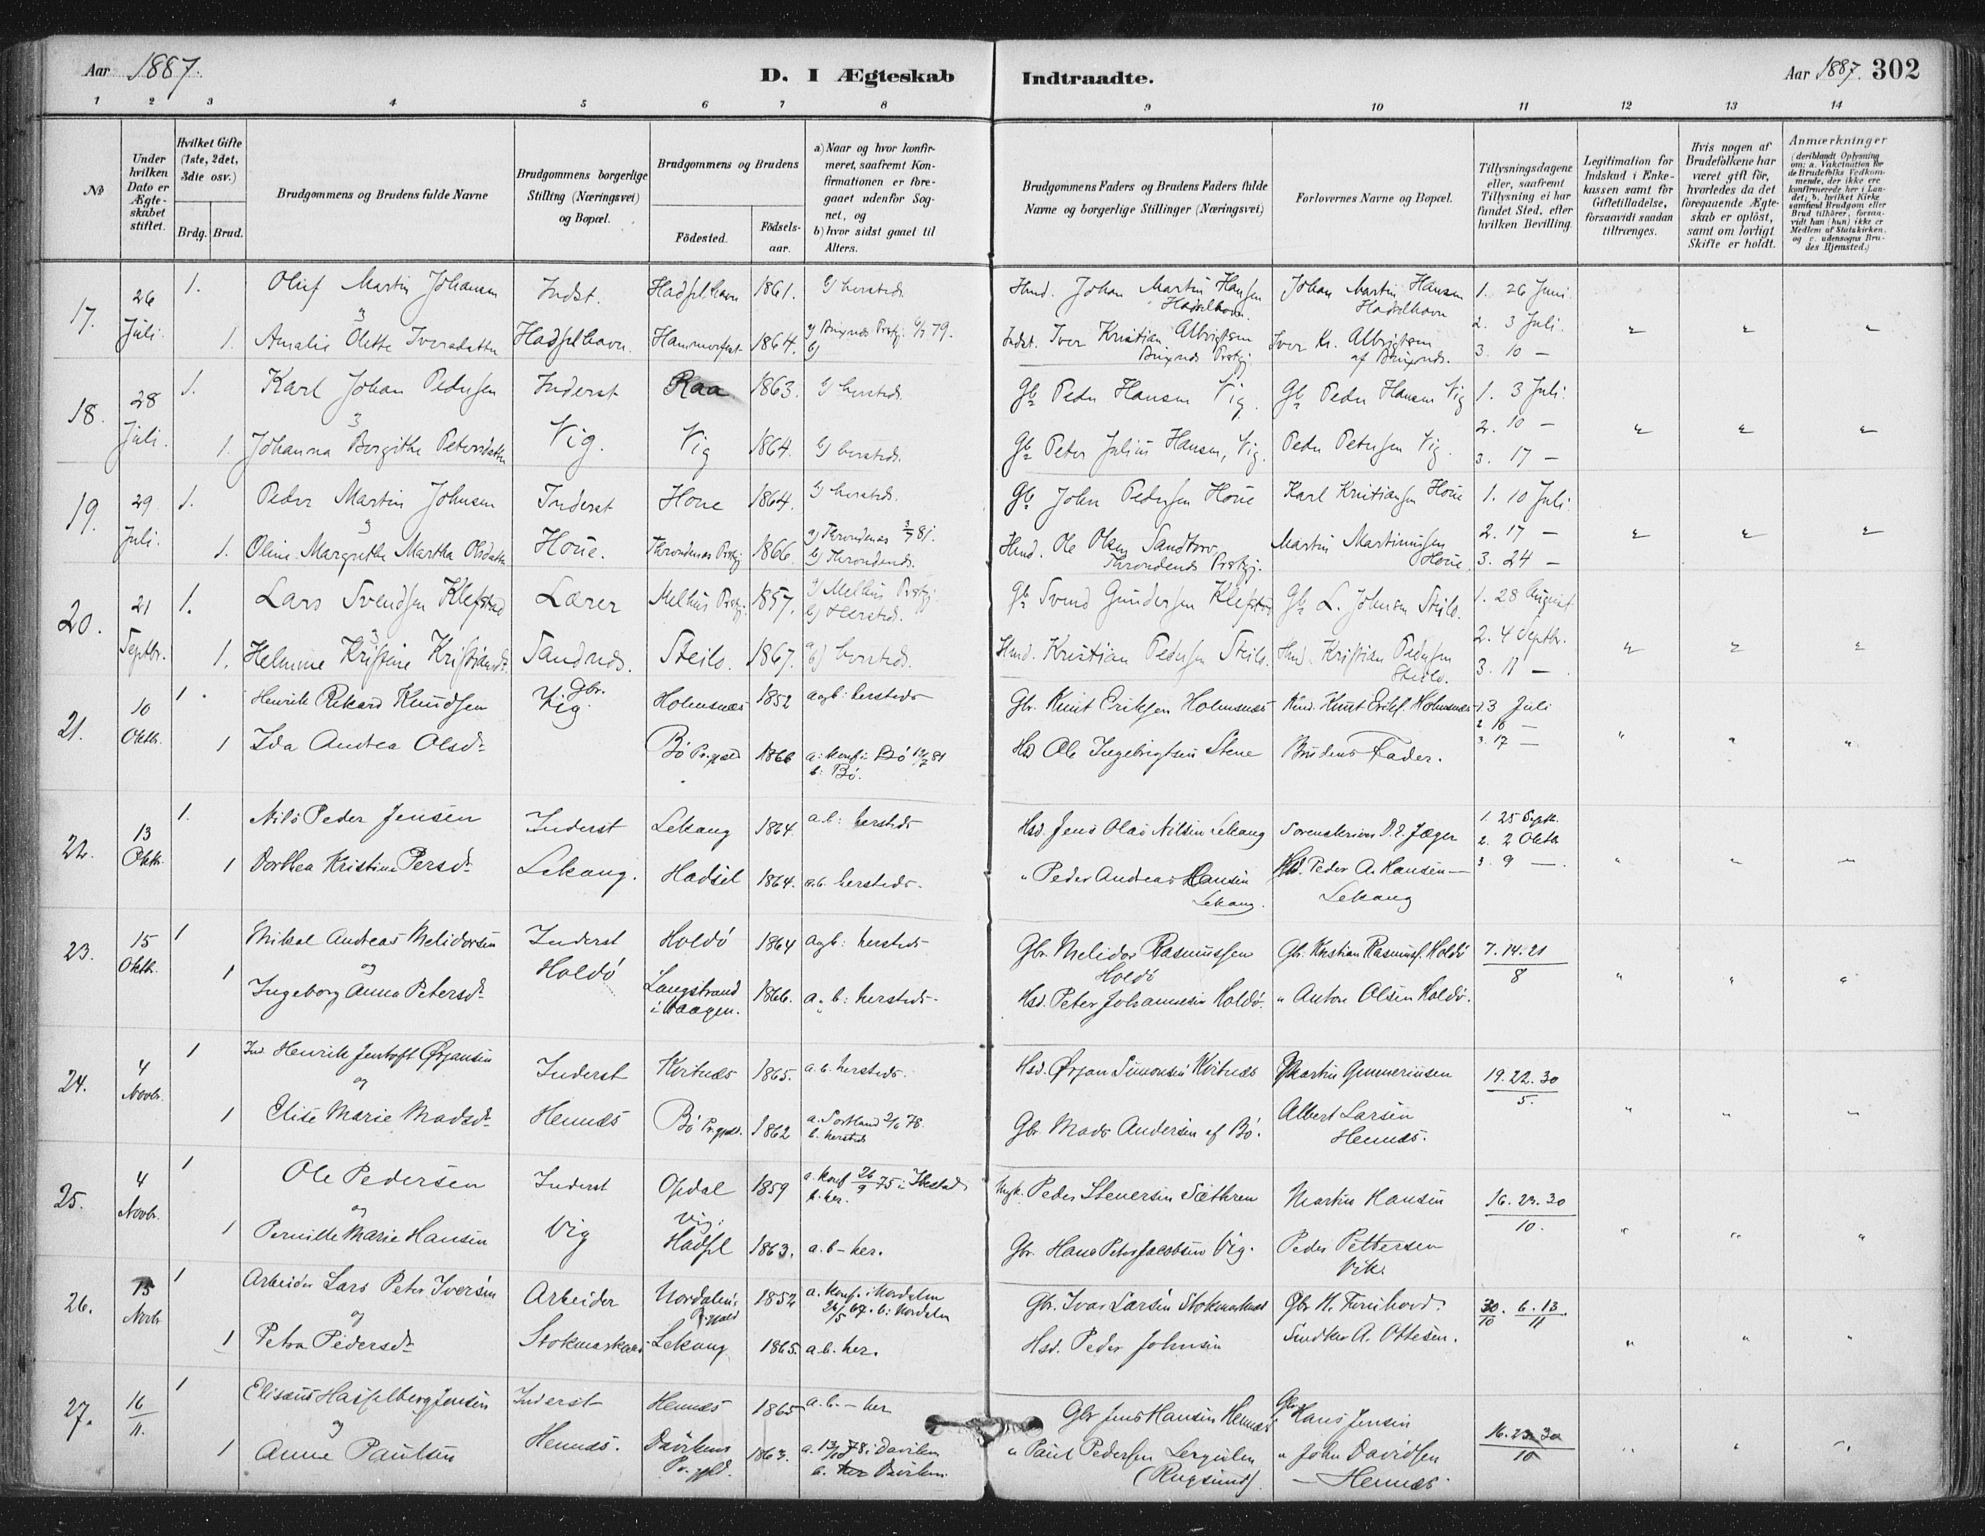 Aar 1887.
D. I Ægteskab Indtraadte.
Aar 1887. 302
1 2 3 4 5 6 7 8 9 10 11 12 13 14
No
Under hvilken Dato er Ægteskabet stiftet.
Hvilket Gifte (1ste, 2det, 3die osv.)
Brdg. Brud.
Brudgommens og Brudens fulde Navne
Brudgommens borgerlige Stilling (Næringsvei) og Bopæl.
Brudgommens og Brudens
Födested.
Födselsaar.
a) Naar og hvor konfirmeret, saafremt Konfirmationen er foregaaet udenfor Sognet, og
b) hvor sidst gaaet til Alters.
Brudgommens Faders og Brudens Faders fulde Navne og borgerlige Stillinger (Næringsvei)
Forlovernes Navne og Bopæl.
Tillysningsdagene eller, saafremt Tillysning ei har fundet Sted, efter hvilken Bevilling.
Legitimation for Indskud i Enkekassen samt for Giftetilladelse, forsaavidt saadan tiltrænges.
Hvis nogen af Brudefolkene har været gift för, hvorledes da det foregaaende Ægteskab er oplöst, samt om lovligt Skifte er holdt.
Anmærkninger
(deriblandt Oplysning om: a. Vakcination for de Brudefolks Vedkommende, der ikke ere konfirmerede her i Landet; b. hvilket Kirkesamfund Brudgom eller Brud tilhörer, forsaavidt han (hun) ikke er Medlem af Statskirken, og c. udensogns Brudes Hjemsted.)
17. 26 Juli. 1. Oluf Martin Johansen Indst. Hadselhavn 1861. Hmd. Johan Martin Hansen Hadselhavn. Johan Martin Hansen Hadselhavn 1. 26 Juni.
1. Amalie Olette Iversdatter Hadselhavn. Hammerfest 1864. Indst. Iver Kristian Albrigtsen Iver Kr. Albrigtsen 2. 3 Juli. 3. 10 —
18. 28 Juli. 1. Karl Johan Pedersen Inderst Raa 1863. Gb. Peder Hansen Vig. Gb. Peder Hansen Vig 1. 3 Juli.
1. Johanna Bergithe Petersdatter Vig. Vig 1864. Gb. Peter Julius Hansen, Vig. Peder Petersen Vig. 2. 10 — 3. 17 —
19. 29 Juli. 1. Peder Martin Johnsen Inderst Hove 1864. Gb. John Pedersen Hove Karl Kristiansen Hove 1. 10 Juli.
1. Oline Margrethe Martha Olsdatter Hove. Throndenes Prstgj. 1866. Hmd. Ole Olsen Sandtorv Throndenes Prstgj. Martin Martinussen Hove 2. 17 — 3. 24 —
20. 21 Septbr. 1. Lars Svendsen Klefstad Lærer Melhus Prstgj. 1857. Gb. Svend Gundersen Klefstad Gb. L. Johnsen Steilo. 1. 28 August
1. Helmine Kristine Kristiansd. Sandnes. Steilo. 1867. Hmd. Kristian Pedersen Steilo. Hmd. Kristian Pedersen Steilo. 2. 4 Septbr. 3. 11 —
21. 10 Oktb. 1. Henrik Rikard Knudsen Gbr. Vig. Holmsnæs 1852 a og b: hersteds Gbr. Knut Eriksen Holmsnæs Knut Eriks. Holmsnæs 1. 3 Juli
1 Ida Andrea Olsd. Bö Prgjeld 1866 b: Bö. Hsd Ole Ingebrigtsen Stene Brudens Fader. 2. 10 — 3. 17 —
22. 13 Oktb. 1. Nils Peder Jensen Inderst Lekang 1864. a. b: hersteds Hsd. Jens Olai Nilsen Lekang P. E. Jæger 1. 25 Septb. 2. 2 Oktb
1 Dorthea Kristine Persd. Lekang. Hadsel 1864. a. b. hersteds. " Peder Andreas Hansen Lekang. Hsd. Peder A. Hansen — Lekang 3. 9 —
23. 15 Oktb. 1 Mikal Andreas Melidorsen Inderst Holdö 1864 a og b: hersteds Gbr. Melidor Rasmussen Holdö Gb. Kristian Rasmuss. Holdö 7. 14. 21 / 8
og
1 Ingeborg Anna Petersd. Holdö Langstrand i Vaagen. 1866. a. b: hersteds. Hsd. Peter Johannesen Holdö. " Anton Olsen Holdö.
24. 4 Novb. 1 Ind. Henrik Jentoft Ørjansen Inderst Kvitnæs 1865. a. b. hersteds. Hsd. Ørjan Simonsen Kvitnæs Martin 19. 22. 30 / 5.
og
1 Elise Marie Madsd. Hennæs Bö Prgjeld. 1862 a. Sortland 78. b. hersteds Gbr. Mads Andersen af Bö. Albert Larsen Hennæs.
25. 4 Novb. 1 Ole Pedersen Inderst Opdal 1859 a. konf 26/9 75 i Ibestad b. her. Peder Stenersen Sæthren Martin Hansen 16. 23. 30 / 10.
og
1 Pernille Marie Hansen Vig Vig. Hadsel 1863. a. b — her. Gbr. Hans Peter Jacobsen Vig. Peder Pettersen Vik.
26. 15 Novb. 1 Arbeider Lars Peter Iversen Arbeider Nordalens Prgjeld 1852 a. konf. i Nordalen 26/5 67. b. i Nordalen Gbr. Ivar Larsen Stokmarknæs 30/10. 6. 13 / 11
og
1 Petra Pedersd. Stokmarknæs Lekang 1865. a. b. her. Hsd. Peder Johnsen A. Ottesen.
27. 16/11. 1 Elisæus Hasselberg Jensen Inderst Hennæs 1865 a. b. — her Gbr Jens Hansen Hennæs Gbr Hans Jensen 16. 23. 30 / 10
og
1 Anne Paulsen Hennæs. Daviken Prgjld. 1863. a. 13/10 78 i Daviken b. her Daviken. " Paul Pedersen (Rugsund) " John Davidsen — Hennæs